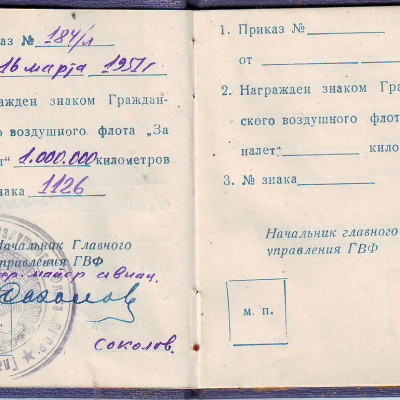 каз № 184/л
16 марта 1951 г.
ражден знаком Граждан-
го воздушного флота „За
лет" 1.000.000 километров
знака 1126
Начальник Главного
управления ГВФ
ген. майор авиац.
Соколов.
1. Приказ №
от
2. Награжден знаком Гра
ского воздушного флот
налет" кило
3. № знака
Начальник главного
управления ГВФ
м. п.